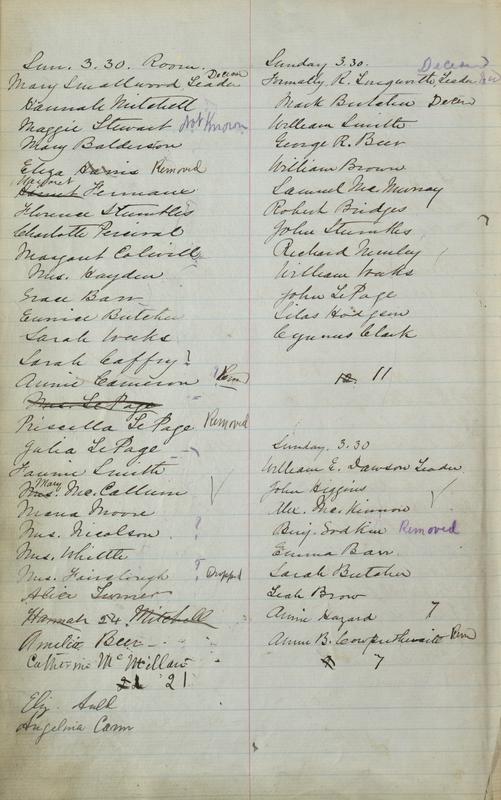 Sun. 3.30. Room.
Mary Smallwood Leader Deceased
Hannah Mitchell
Maggie Stewart Not Known
Mary Balderson
Eliza Harris Removed
Margaret
Harriet Fermane
Florence Stumbles
Charlotte Percival
Margaret Colwill
Mrs. Hayden
Grace Barr
Eunice Butcher
Sarah Weeks
Sarah Caffry?
Annie Cameron ? Rem
Mrs. Le Page
Priscilla Le Page Removed
Julia Le Page
Fannie Smith
Mary
Mrs. Mc. Callum
Mana Moore
Mrs. Nicolson ?
Mrs. Whittle
Mrs. Fairclough ? Dropped
Alice Turner
Hannah Mitchell
Amelia Beer
Catherine Mc Millan
21 21
Eliz. Aull
Angelina Cann
Sunday 3.30.
Formally R. Longworth Leader Deceased
Mark Butcher Decen
William Smith
George R. Beer
William Brown
Samuel Mc Murray
Robert Bridges
John Stumbles
Richard
William Weeks
John Le Page
Silas Hodgson
Cyrus Clark
12. 11
Sunday. 3.30
William E. Dawson Leader
John Higgins
Alex. Mc. Kinnon
Benj. Sodkin Removed
Emma Barr
Sarah Butcher
Leah Brow
Annie Hazard 7
Annie B. Cowperthwaite Rem
9 7